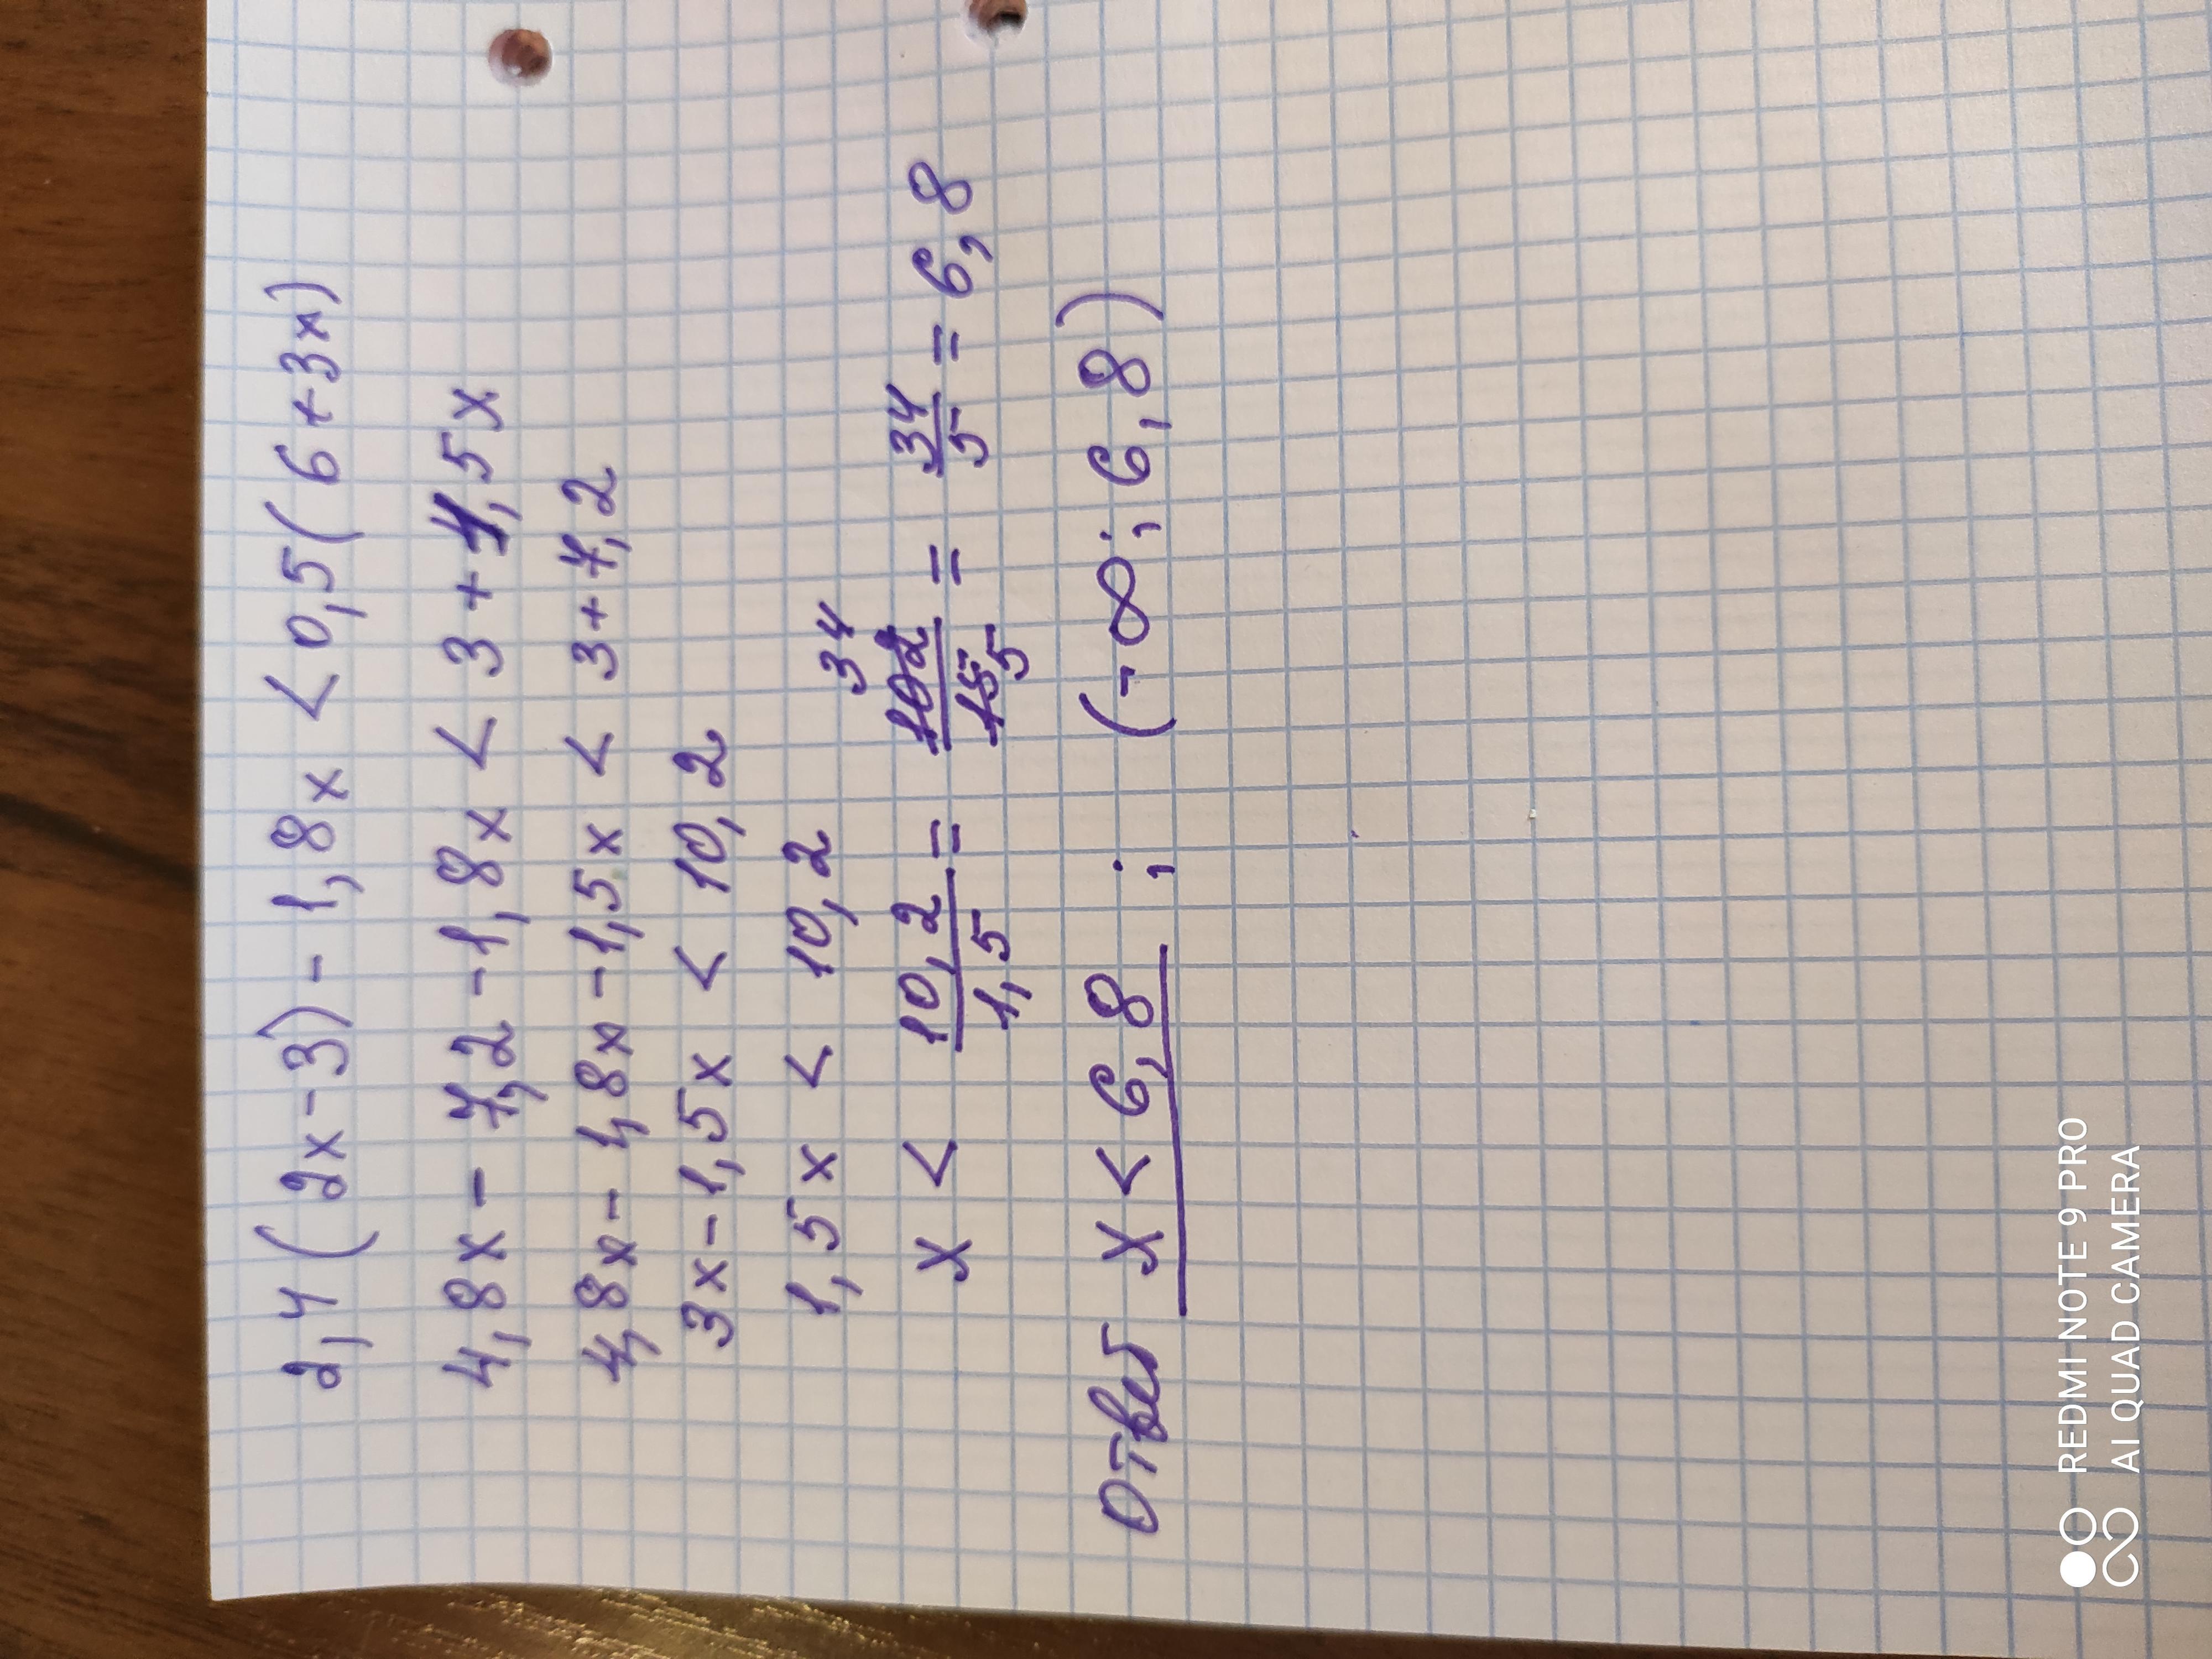 2,4(2x-3)-1,8x<0,5(6+3x)
4,8x-7,2-1,8x<3+1,5x
4,8x-1,8x-1,5x<3+7,2
3x-1,5x<10,2
1,5x<10,2
34
x<10,2/1,5=102/15=34/5=6,8
5
Ответ x<6,8; (-∞;6,8)
REDMI NOTE 9 PRO
AI QUAD CAMERA